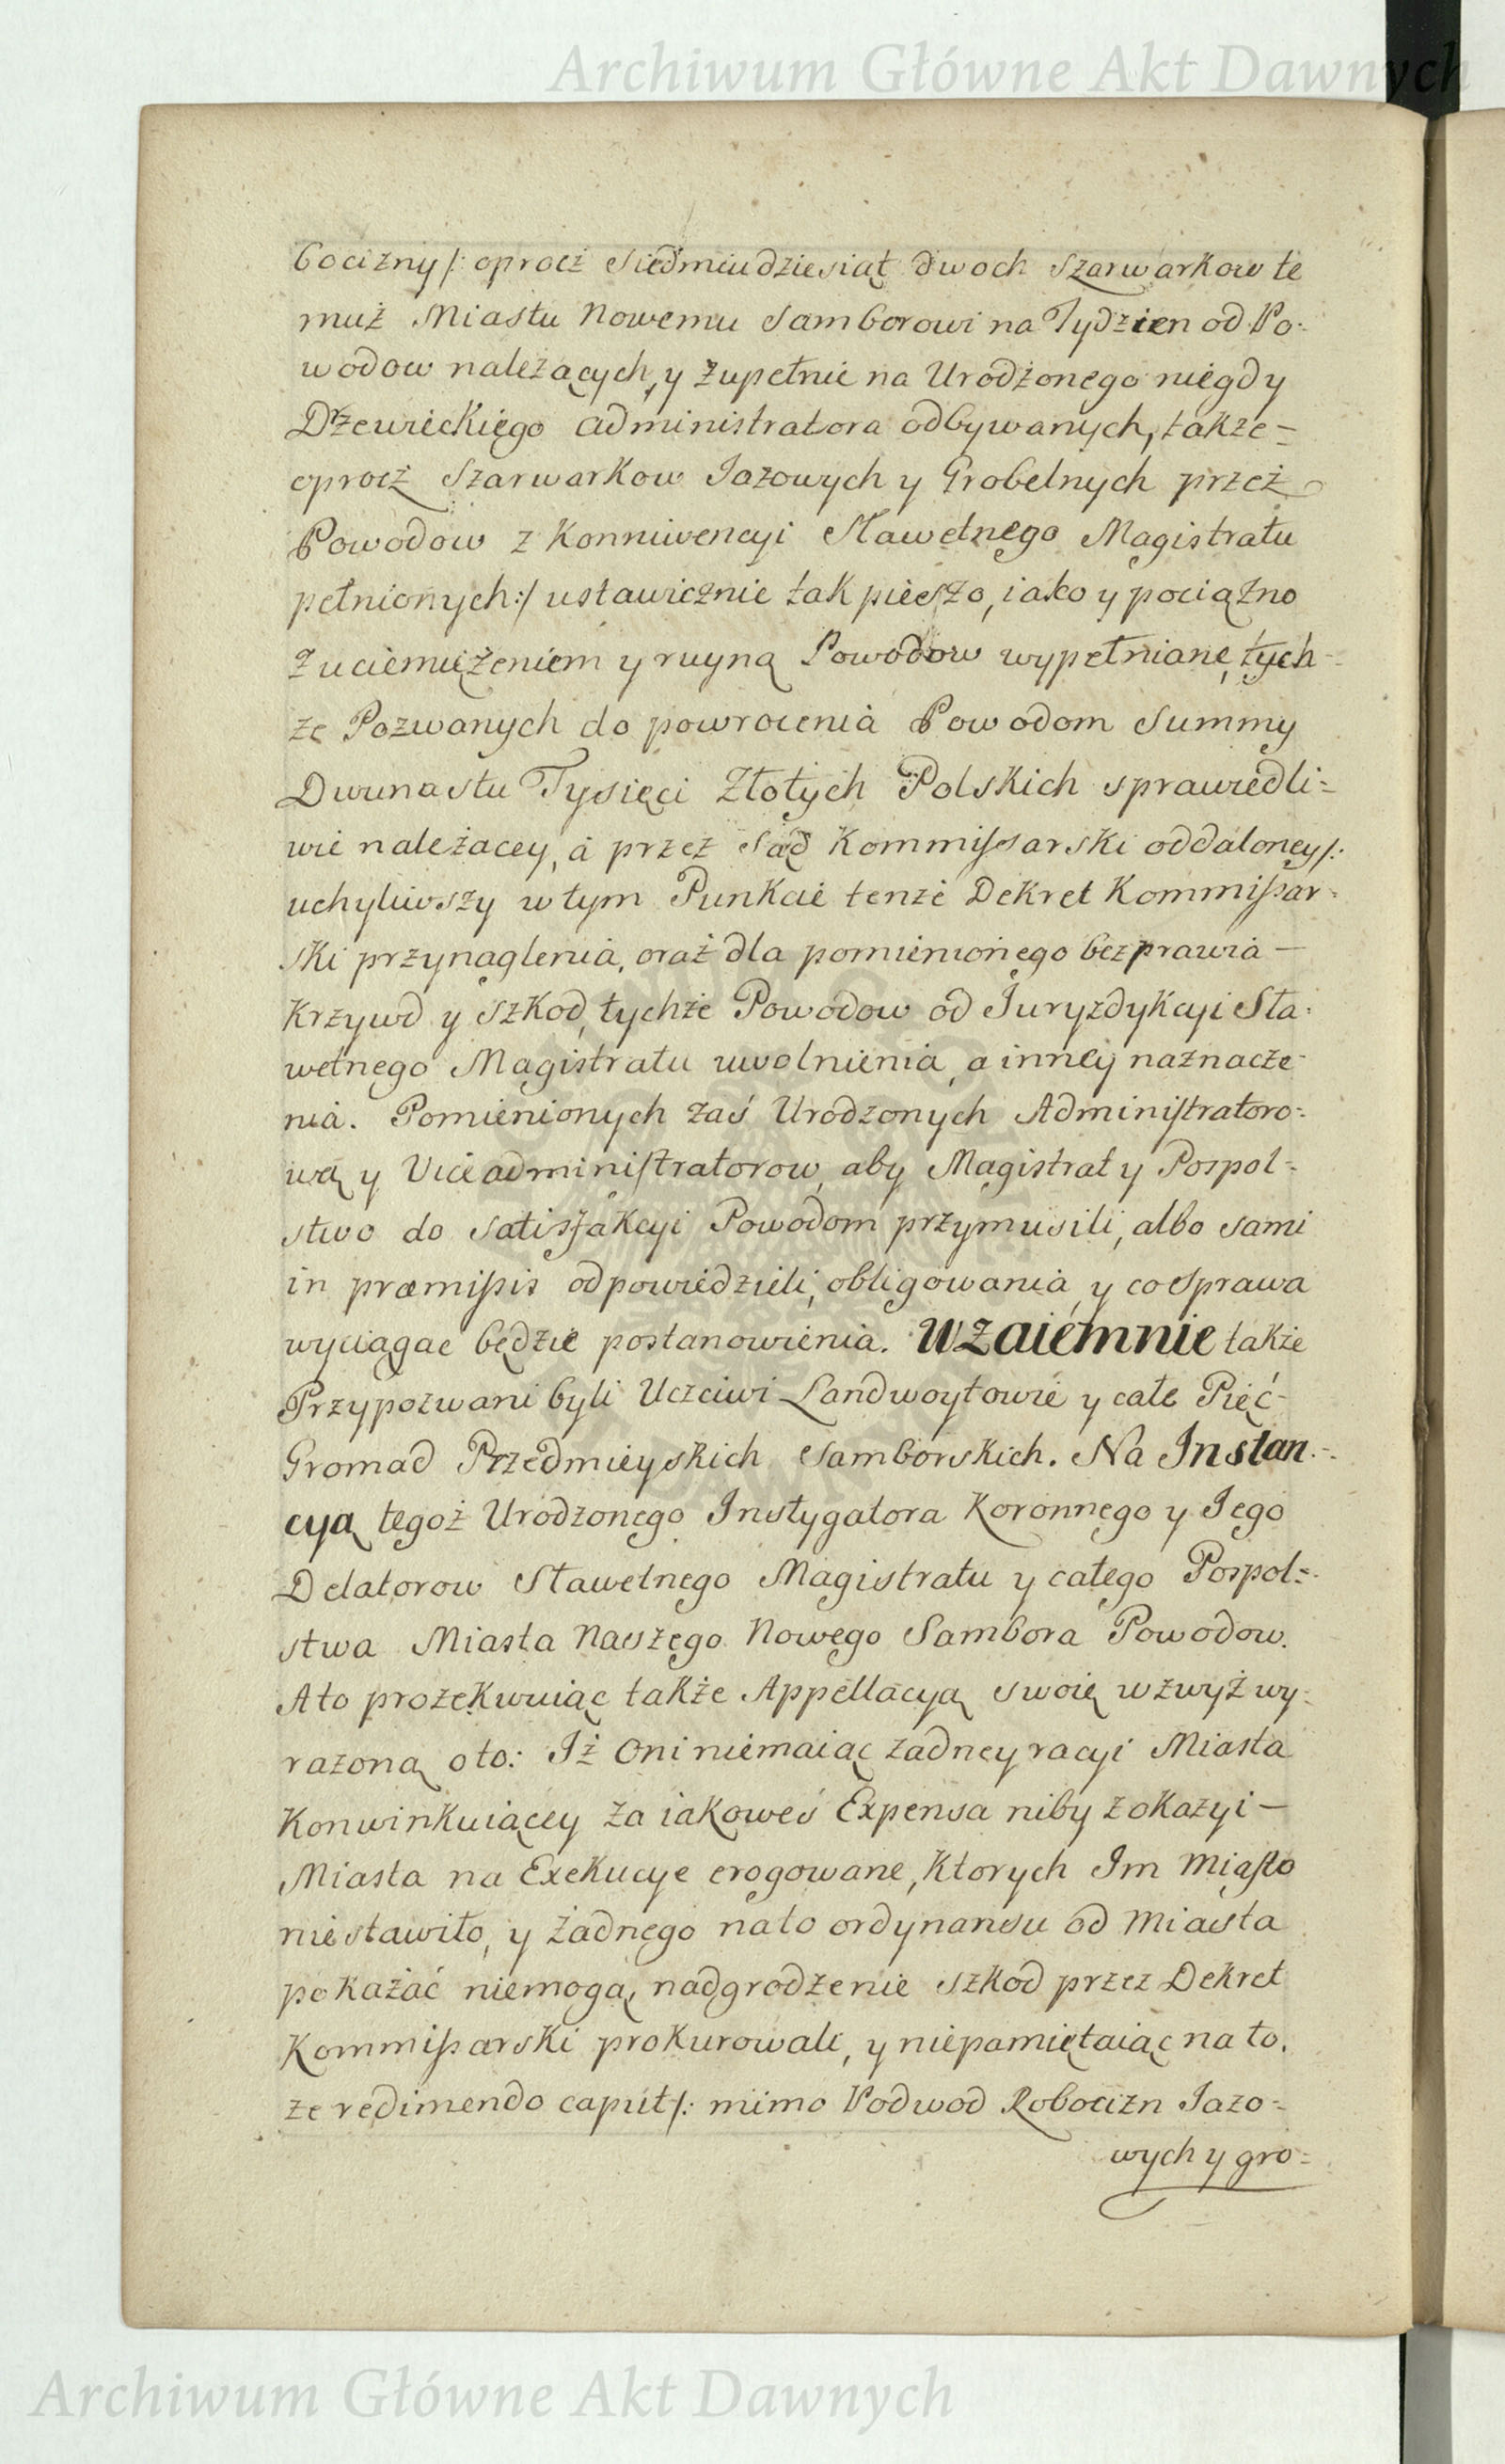 Archiwum Główne Akt Dawnych
bocizny /: oprocż siedmiudziesiąt dwoch Szarwarkow te
muż Miastu Nowemu Samborowi na Tydzien od Po-
wodow należących, y żupełnie na Urodżonego niegdy
Drzewieckięgo Administratora odbywanych, także =
oprocż Szarwarkow Jazowych y Grobelnych przeż
Powodow z Konniwencyi Sławetnego Magistratu
pełnionych :/ ustawicznie tak pieszo, iako y pociążno
z uciemiężeniem y ruyną Powodow wypełnianę, tych-
że Pozwanych do powrocenia Powodom Summy
Dwunastu Tysięci Złotych Polskich sprawiedli=
wie należacey, a przez Sąd Kommissarski oddaloney /:
uchyliwszy w tym Punkcie tenże Dekret Kommissar-
ski przynaglenia, oraż dla pomienionęgo bezprawia —
Krzywd y szkod, tychże Powodow od Juryzdykcyi Sła-
wetnego Magistratu uwolnienia, a inney naznacze-
nia. Pomienionych zaś Urodzonych Administratoro=
wą y Viceadministratorow, aby Magistrat y Pospol-
stwo do satisfakcyi Powodom przymusili, albo sami
in præmissis odpowiedzieli, obligowania, y co sprawa
wyciągac będzie postanowienia. Wzaiemnie także
Przypozwani byli Uczciwi Landwoytowie y całe Pięć-
Gromad Przedmieyskich Samborskich. Na Instan-
cyą tegoż Urodzonego Instygatora Koronnego y Jego
Delatorow Sławetnego Magistratu y całego Pospol=
stwa Miasta Naszego Nowego Sambora Powodow.
A to prozekwuiąc także Appellacyą swoię wzwyż wy-
rażoną o to: Iż Oni niemaiąc żadney racyi Miasta
Konwinkuiącey za iakoweś Expensa niby z okazyi —
Miasta na Exekucye erogowane, Ktorych Im Miasto
nie stawiło, y żadnego na to ordynansu od Miasta
pokażać niemogą, nadgrodżenie szkod przez Dekret
Kommissarski prokurowali, y niepamiętaiąc na to,
że redimendo caput /: mimo Podwod Robocizn Jazo-
wych y gro=
Archiwum Główne Akt Dawnych